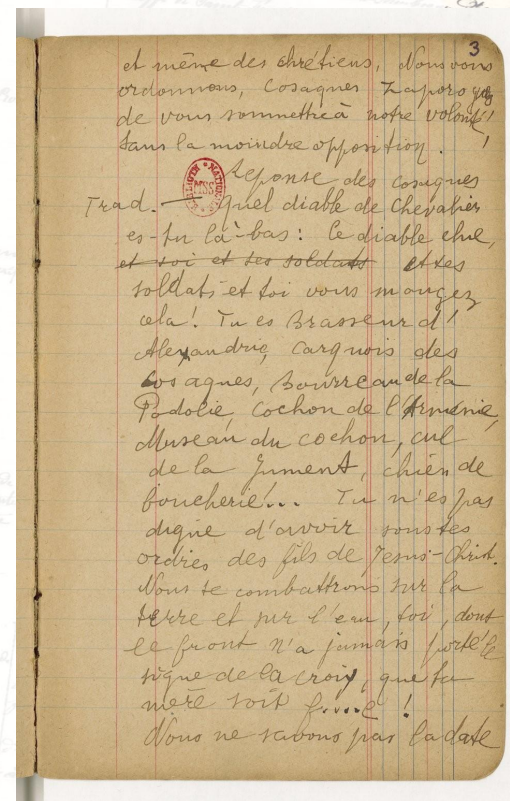 3
et même des chrétiens, Nous vous
ordonnons, Cosaques Zaporogues
de vous soumettre à notre volonté!
sans la moindre opposition.
Réponse des cosaques
Trad. — Quel diable de Chevalier
es-tu là-bas: le diable chie,
et toi et tes soldats et tes
soldats et toi vous mangez
cela! Tu es Brasseur d'
Alexandrie, Carquois des
cosaques, Bourreau de la
Podolie, Cochon de l'Arménie,
Museau du cochon, cul
de la Jument, chien de
boucherie!... Tu n'es pas
digne d'avoir sous tes
ordres des fils de Jesus-Christ.
Nous te combattrons sur la
terre et sur l'eau, toi, dont
le front n'a jamais porté le
signe de la croix, que ta
mère soit f....e !
Nous ne savons pas la date